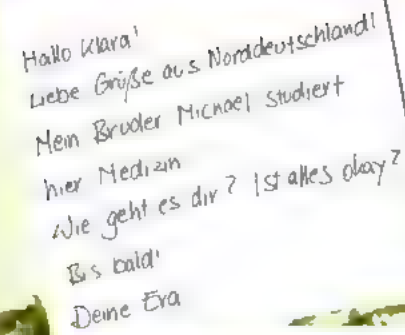 Hallo Klara!
Liebe Grüße aus Norddeutschland!
Mein Bruder Michael studiert
hier Medizin
Wie geht es dir? Ist alles okay?
Bis bald!
Deine Eva